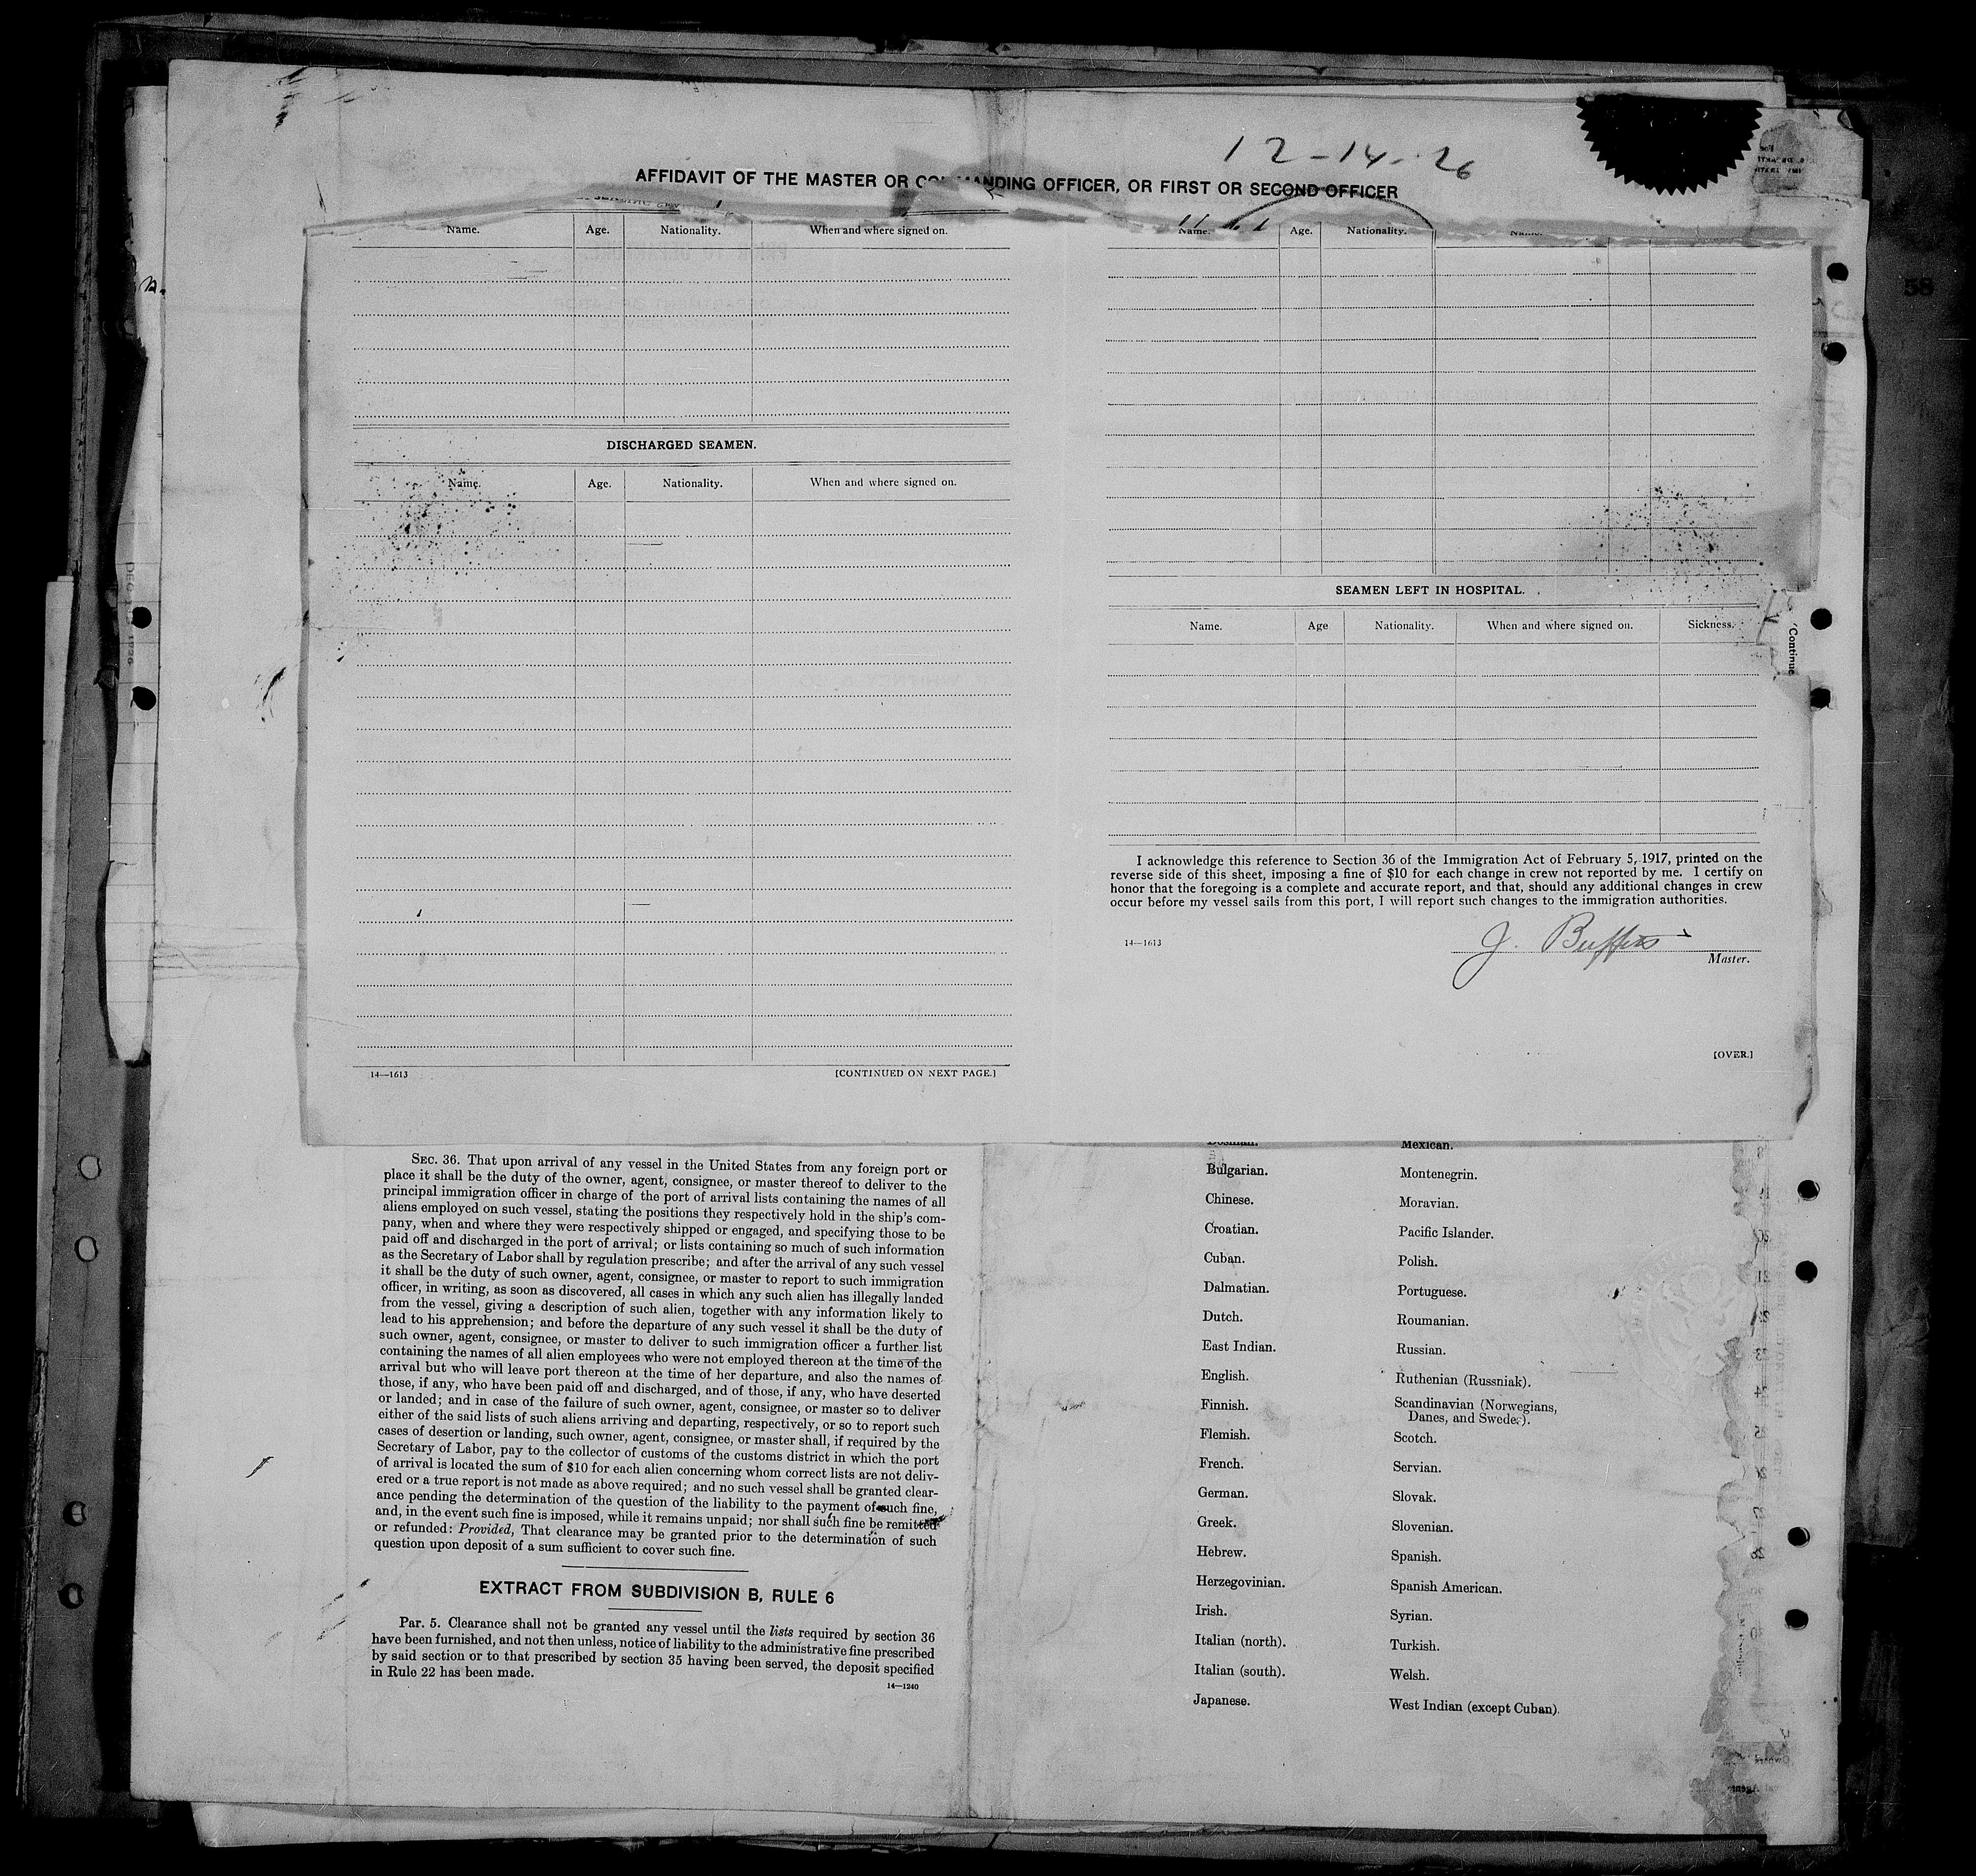 12-14-26
AFFIDAVIT OF THE MASTER OR COMMANDING OFFICER, OR FIRST OR SECOND OFFICER
58
Name. Age. Nationality. When and where signed on.
DISCHARGED SEAMEN.
Name. Age. Nationality. When and where signed on.
14—1613 [CONTINUED ON NEXT PAGE.]
Name. Age. Nationality. Name.
SEAMEN LEFT IN HOSPITAL.
Name. Age Nationality. When and where signed on. Sickness.
I acknowledge this reference to Section 36 of the Immigration Act of February 5, 1917, printed on the
reverse side of this sheet, imposing a fine of $10 for each change in crew not reported by me. I certify on
honor that the foregoing is a complete and accurate report, and that, should any additional changes in crew
occur before my vessel sails from this port, I will report such changes to the immigration authorities.
14—1613
J.
Master.
[OVER.]
(Continue
SEC. 36. That upon arrival of any vessel in the United States from any foreign port or
place it shall be the duty of the owner, agent, consignee, or master thereof to deliver to the
principal immigration officer in charge of the port of arrival lists containing the names of all
aliens employed on such vessel, stating the positions they respectively hold in the ship's com-
pany, when and where they were respectively shipped or engaged, and specifying those to be
paid off and discharged in the port of arrival; or lists containing so much of such information
as the Secretary of Labor shall by regulation prescribe; and after the arrival of any such vessel
it shall be the duty of such owner, agent, consignee, or master to report to such immigration
officer, in writing, as soon as discovered, all cases in which any such alien has illegally landed
from the vessel, giving a description of such alien, together with any information likely to
lead to his apprehension; and before the departure of any such vessel it shall be the duty of
such owner, agent, consignee, or master to deliver to such immigration officer a further list
containing the names of all alien employees who were not employed thereon at the time of the
arrival but who will leave port thereon at the time of her departure, and also the names of
those, if any, who have been paid off and discharged, and of those, if any, who have deserted
or landed; and in case of the failure of such owner, agent, consignee, or master so to deliver
either of the said lists of such aliens arriving and departing, respectively, or so to report such
cases of desertion or landing, such owner, agent, consignee, or master shall, if required by the
Secretary of Labor, pay to the collector of customs of the customs district in which the port
of arrival is located the sum of $10 for each alien concerning whom correct lists are not deliv-
ered or a true report is not made as above required; and no such vessel shall be granted clear-
ance pending the determination of the question of the liability to the payment of such fine,
and, in the event such fine is imposed, while it remains unpaid; nor shall such fine be remitted
or refunded: Provided, That clearance may be granted prior to the determination of such
question upon deposit of a sum sufficient to cover such fine.
EXTRACT FROM SUBDIVISION B, RULE 6
Par. 5. Clearance shall not be granted any vessel until the lists required by section 36
have been furnished, and not then unless, notice of liability to the administrative fine prescribed
by said section or to that prescribed by section 35 having been served, the deposit specified
in Rule 22 has been made.
14—1240
Bosnian.
Bulgarian.
Chinese.
Croatian.
Cuban.
Dalmatian.
Dutch.
East Indian.
English.
Finnish.
Flemish.
French.
German.
Greek.
Hebrew.
Herzegovinian.
Irish.
Italian (north).
Italian (south).
Japanese.
Mexican.
Montenegrin.
Moravian.
Pacific Islander.
Polish.
Portuguese.
Roumanian.
Russian.
Ruthenian (Russniak).
Scandinavian (Norwegians,
Danes, and Swedes).
Scotch.
Servian.
Slovak.
Slovenian.
Spanish.
Spanish American.
Syrian.
Turkish.
Welsh.
West Indian (except Cuban).